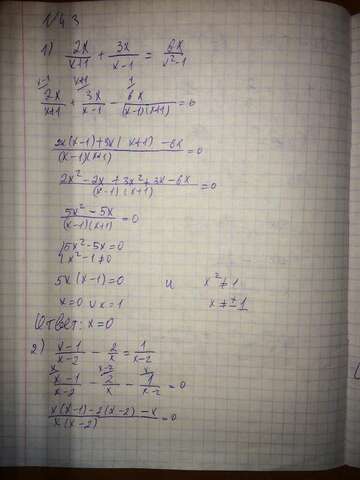 №43
1) 2x/(x+1) + 3x/(x-1) = 6x/(x²-1)
2x/(x+1) + 3x/(x-1) - 6x/((x-1)(x+1)) = 0
(2x(x-1)+3x(x+1)-6x)/((x-1)(x+1)) = 0
(2x²-2x+3x²+3x-6x)/((x-1)(x+1)) = 0
(5x²-5x)/((x-1)(x+1)) = 0
{5x²-5x=0
x²-1≠0
5x(x-1)=0 и x²≠1
x=0 ∪ x=1 x≠±1
Ответ: x=0
2) (x-1)/(x-2) - 2/x = 1/(x-2)
(x-1)/(x-2) - 2/x - 1/(x-2) = 0
(x(x-1)-2(x-2)-x)/(x(x-2)) = 0